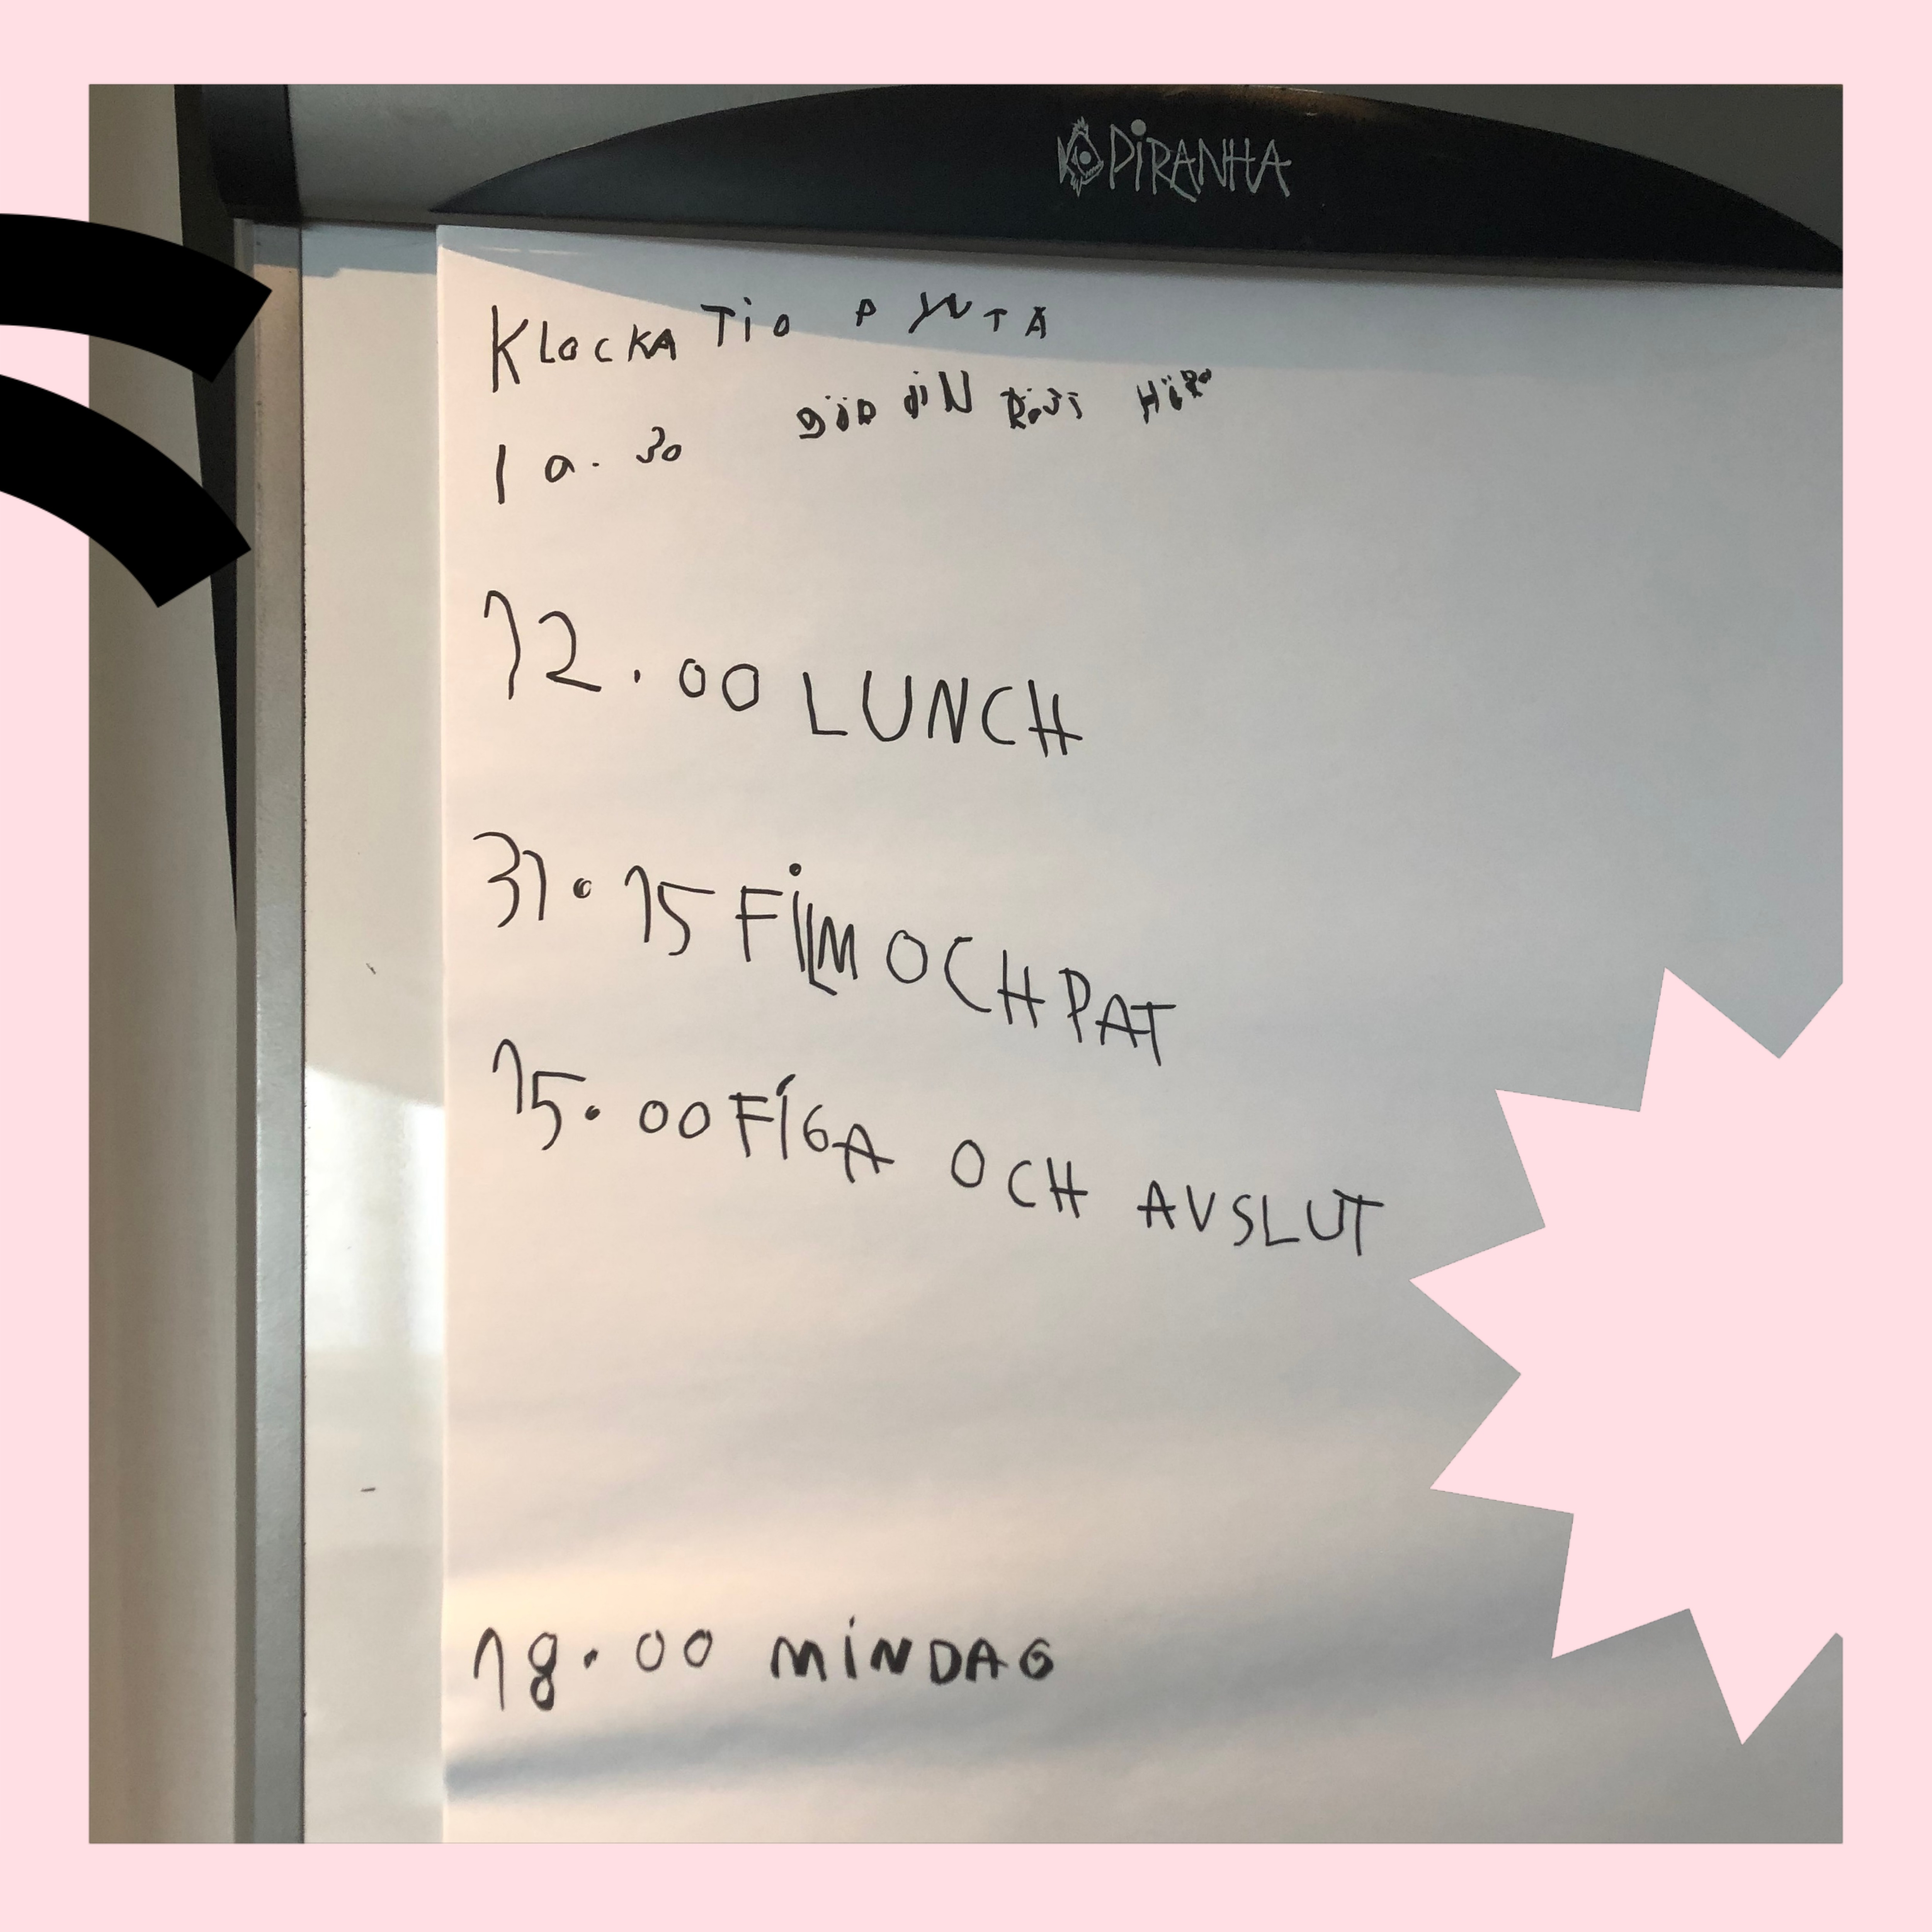 PiRANHA
KLOCKA TiO PYNTA
10.30
12.00 LUNCH
31.15 FiLM OCH PAT
15.00 FIGA OCH AVSLUT
18.00 MiNDAG